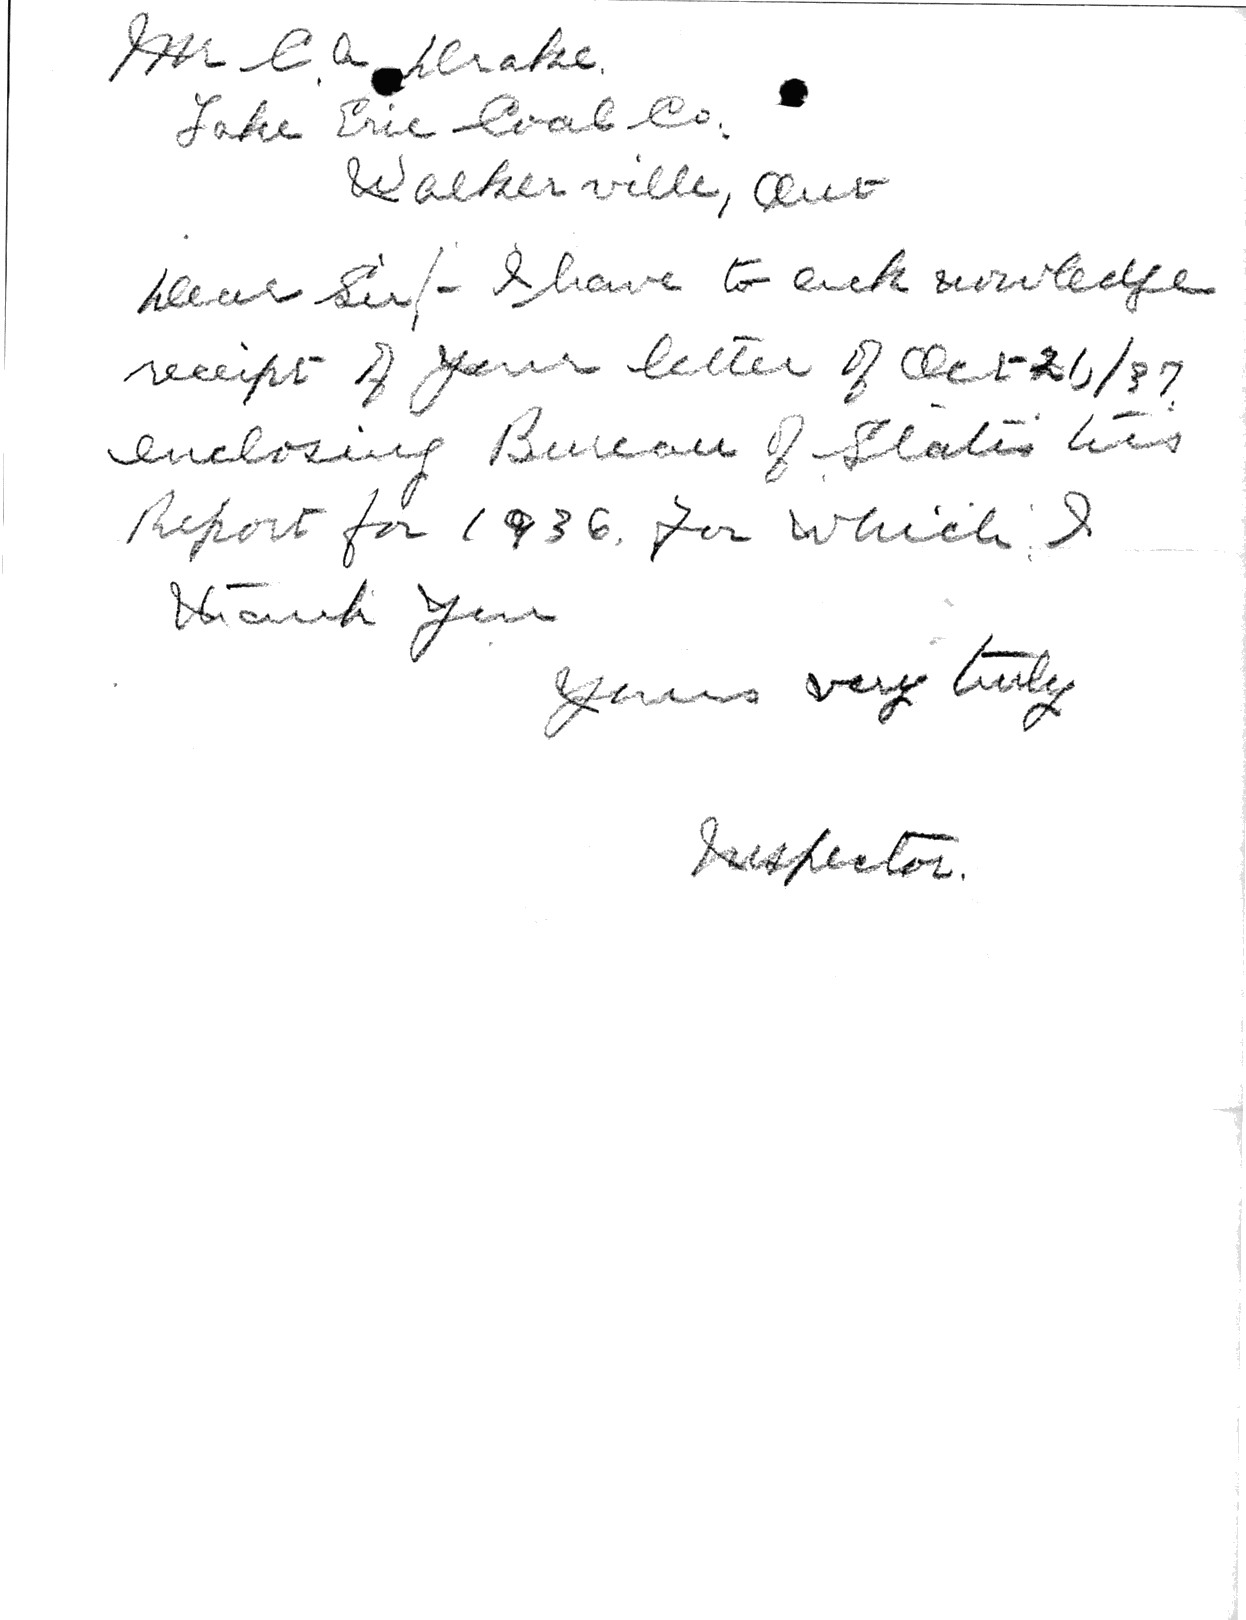 Mr C. A. Drake.
Lake Erie Coal Co.
Walkerville, Ont
Dear Sir/- I have to acknowledge
receipt of your letter of Oct 26/37
enclosing Bureau of Statistics
Report for 1936. For which I
Thank You
Yours very truly
Inspector.